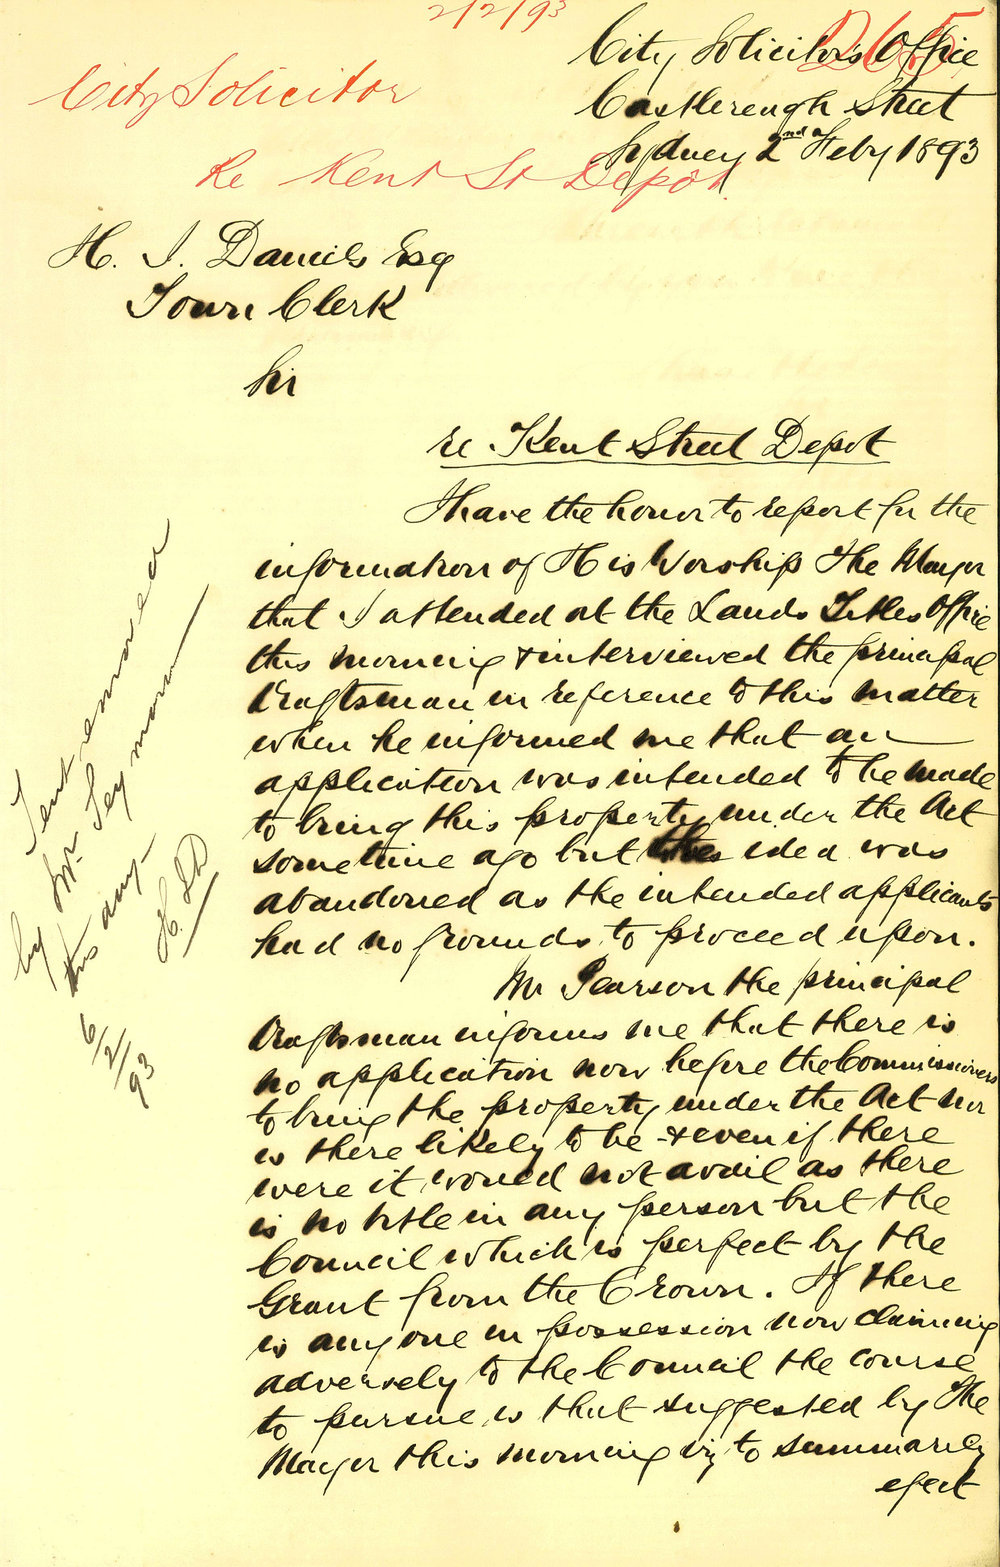 2/2/93
265
City Solicitor
Re Kent St Depôt
City Solicitor's Office
Castlereagh Street
Sydney 2nd Feby 1893
H. J. Daniels Esq
Town Clerk
Sir
re Kent Street Depot
I have the honor to report for the
information of His Worship The Mayor
that I attended at the Lands Titles Office
this morning & interviewed the principal
Draftsman in reference to this matter
when he informed me that an
application was intended to be made
to bring this property under the Act
sometime ago but the idea was
abandoned as the intended applicants
had no grounds to proceed upon.
Mr Pearson the principal
Draftsman informs me that there is
no application now before the Commissioners
to bring the property under the Act nor
is there likely to be & even if there
were it would not avail as there
is no title in any person but the
Council which is perfect by the
Grant from the Crown. If there
is any one in possession now claiming
adversely to the Council the course
to pursue is that suggested by The
Mayor this morning viz to summarily
eject
Tent removed
by Mr Seymour
this day
H.J.D
6/2/93